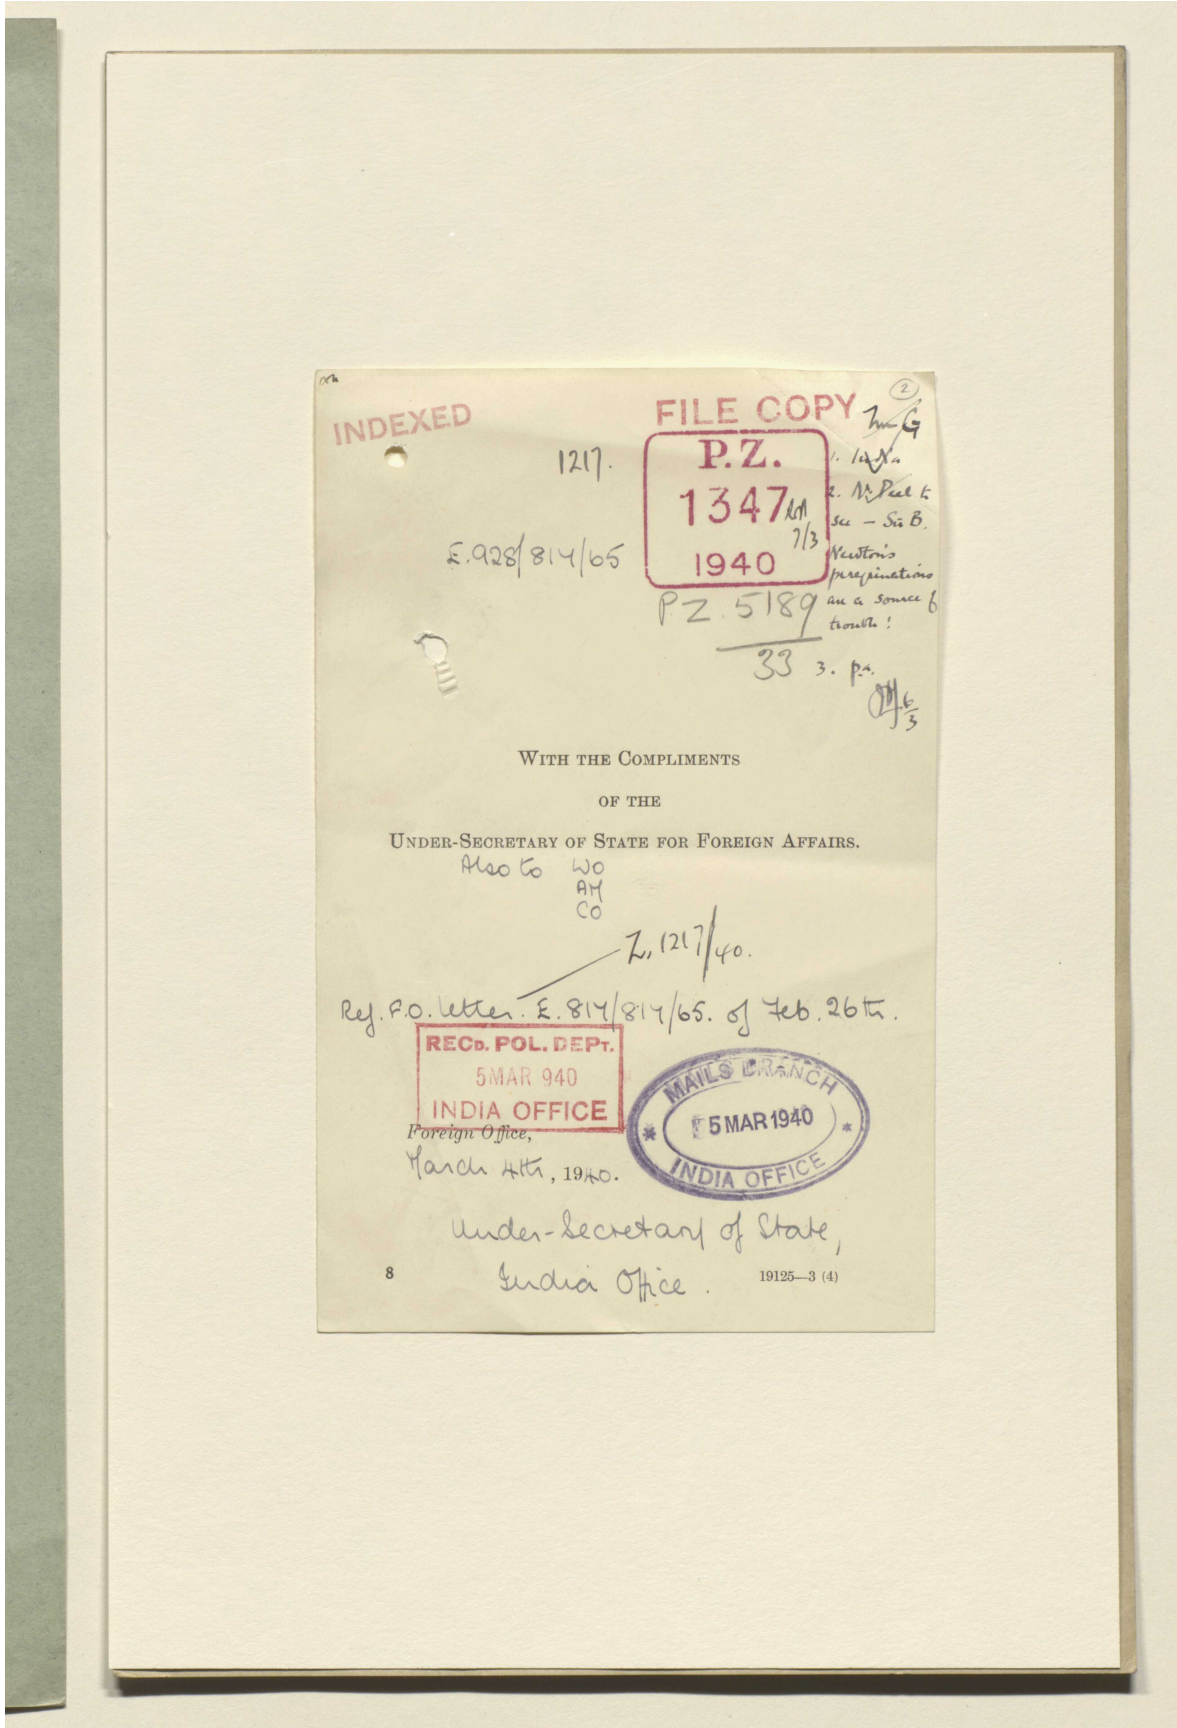 2
INDEXED
FILE COPY
1217.
P.Z.
1347
7/3
1940
E.928/814/65
P.Z. 5189
33
1. India
2. Mr Peel to
see - Sir B.
Newton's
peregrinations
are a source of
trouble!
3. p.a.
6/3
WITH THE COMPLIMENTS
OF THE
UNDER-SECRETARY OF STATE FOR FOREIGN AFFAIRS.
Also to WO
AM
CO
Z. 1217/40.
Ref. F.O. letter. E. 814/814/65. of Feb. 26th.
RECD. POL. DEPT.
5MAR 940
INDIA OFFICE
MAILS BRANCH
5 MAR 1940
INDIA OFFICE
Foreign Office,
March 4th, 1940.
Under-Secretary of State,
India Office.
8
19125—3 (4)